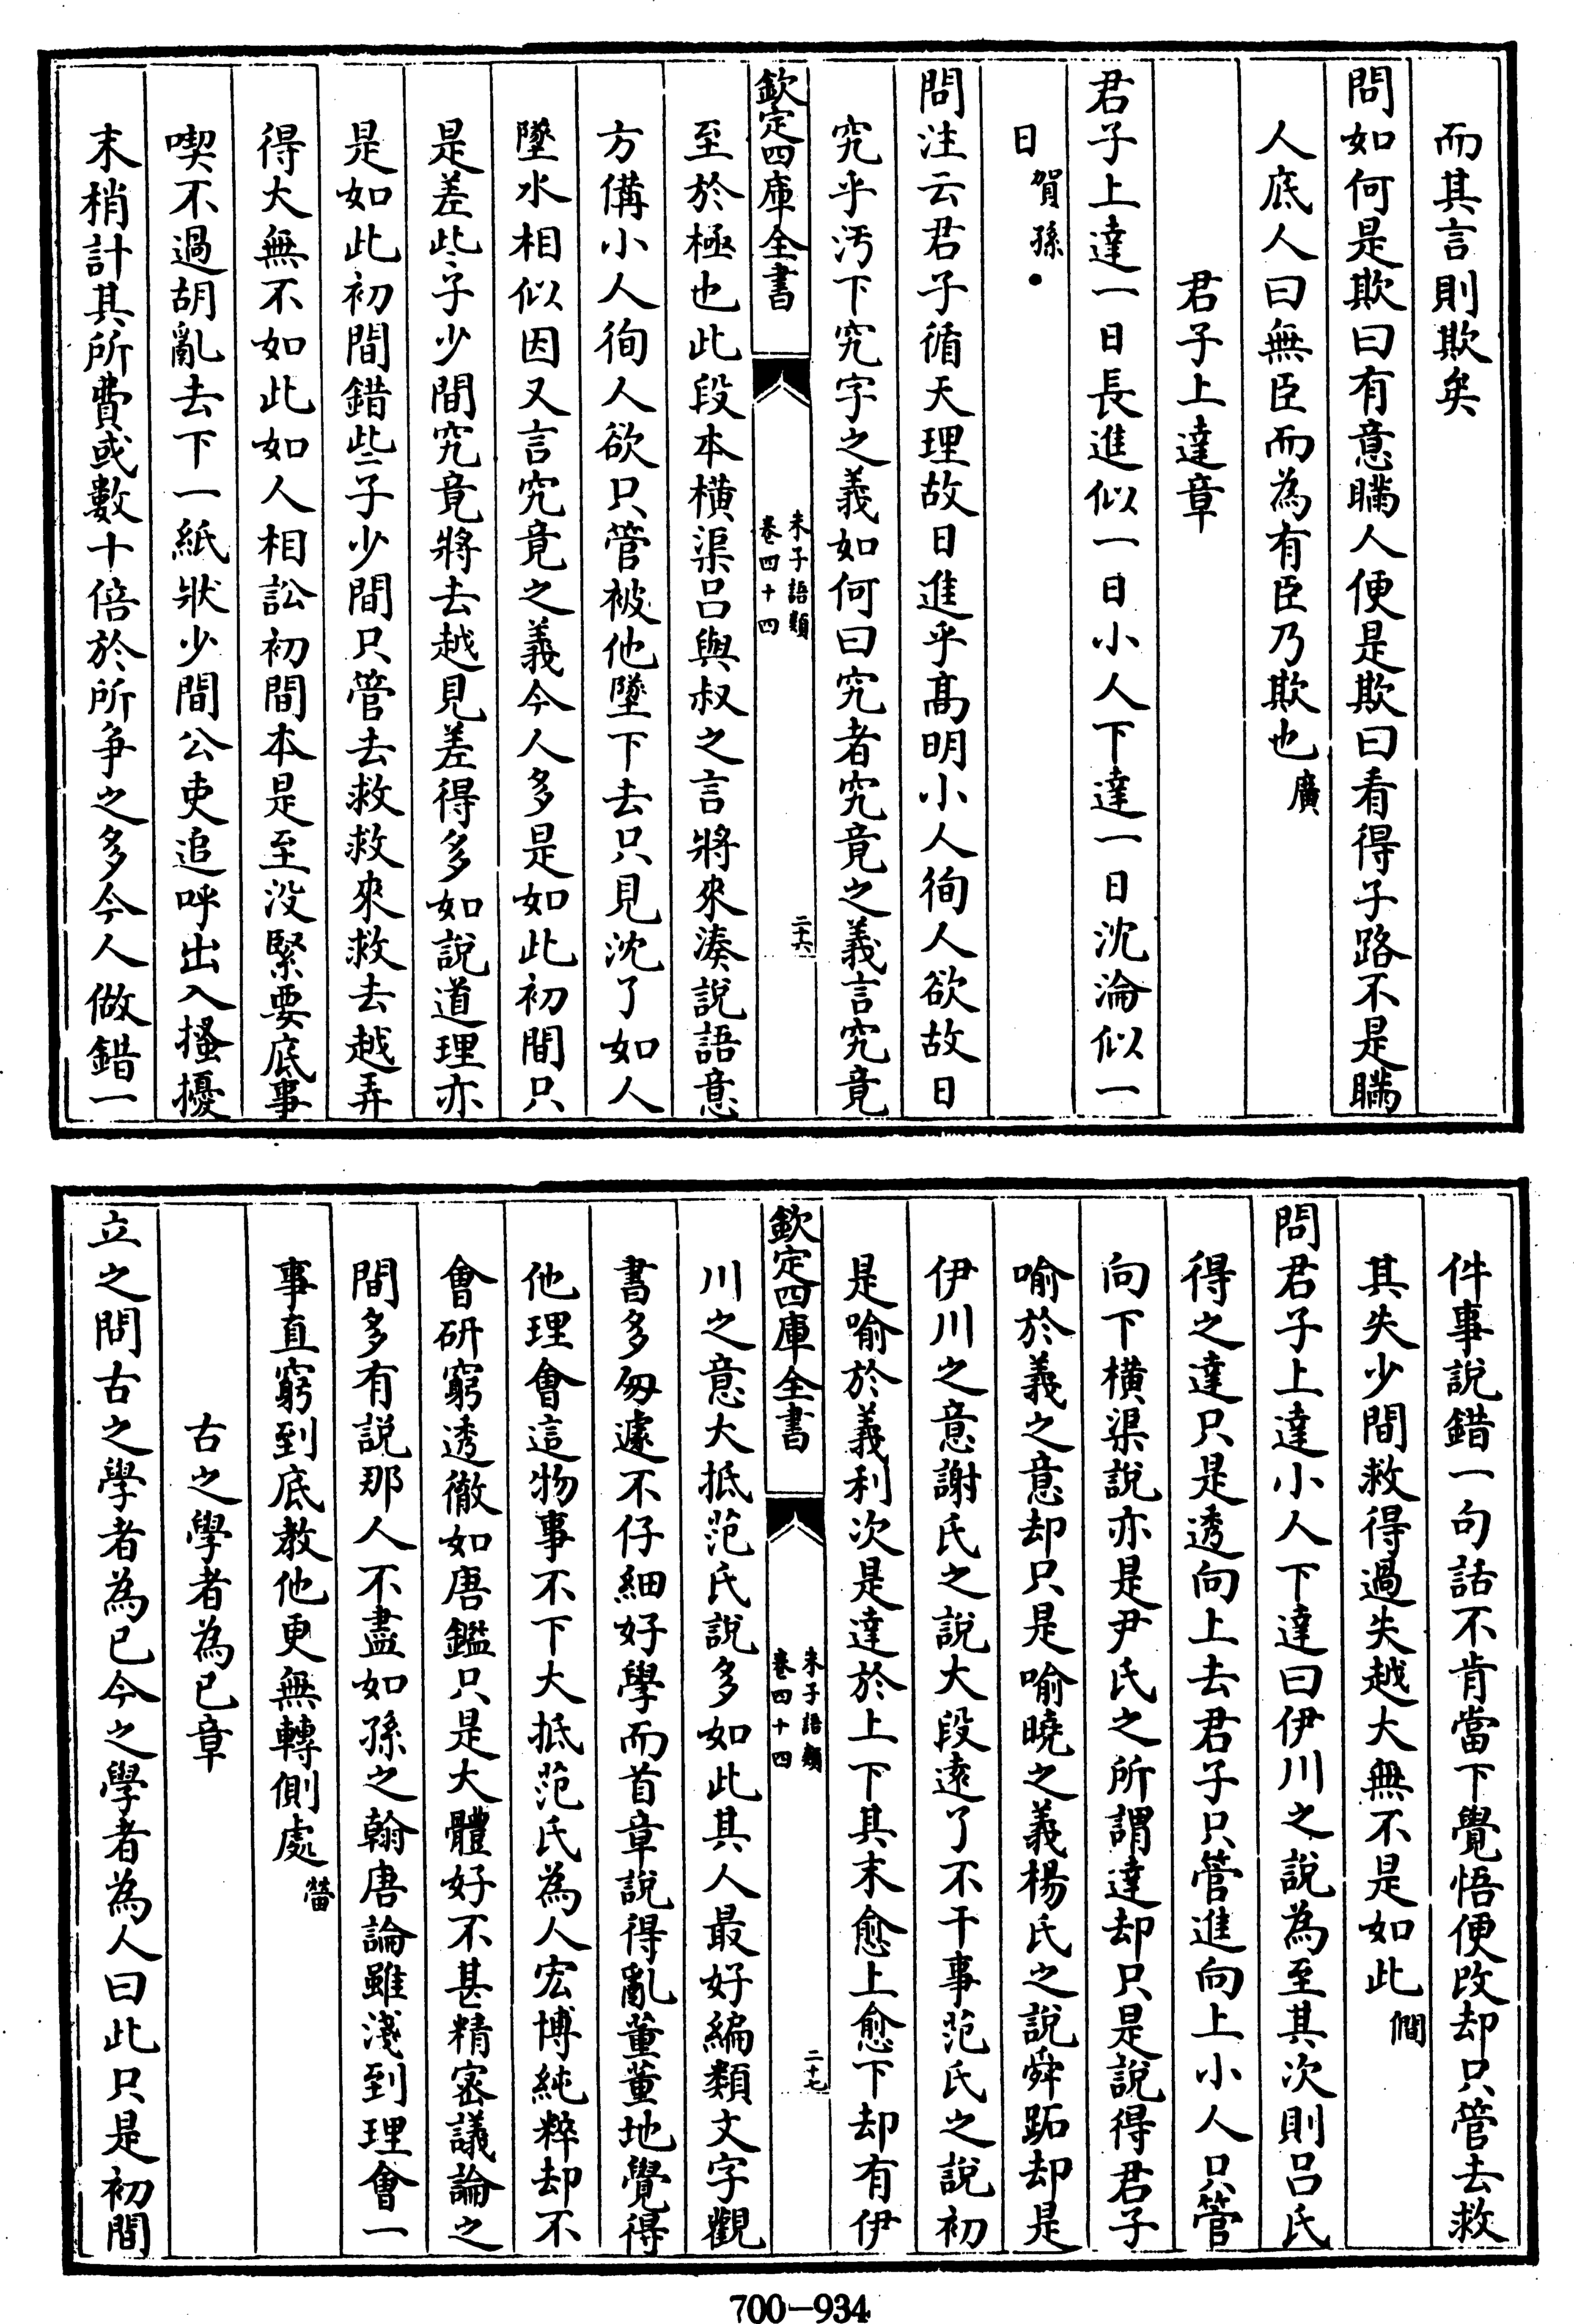 而其言則欺矣
問如何是欺曰有意瞞人便是欺曰看得子路不是瞞
人底人曰無臣而為有臣乃欺也廣
君子上達章
君子上達一日長進似一日小人下達一日沈淪似一
日賀孫●
問注云君子循天理故日進乎髙明小人徇人欲故日
究乎汚下究字之義如何曰究者究竟之義言究竟
至於極也此段本横渠吕與叔之言將來湊說語意
方備小人徇人欲只管被他墜下去只見沈了如人
墜水相似因又言究竟之義今人多是如此初間只
是差些子少間究竟將去越見差得多如說道理亦
是如此初間錯些子少間只管去救救來救去越弄
得大無不如此如人相訟初間本是至没緊要底事
喫不過胡亂去下一紙狀少間公吏追呼出入搔擾
末梢計其所費或數十倍於所爭之多今人做錯一
欽定四庫全書
朱子語類
卷四十四
二十六
件事說錯一句話不肯當下覺悟便改却只管去救
其失少間救得過失越大無不是如此僩
問君子上達小人下達曰伊川之說為至其次則吕氏
得之達只是透向上去君子只管進向上小人只管
向下横渠說亦是尹氏之所謂達却只是說得君子
喻於義之意却只是喻曉之義楊氏之說舜跖却是
伊川之意謝氏之說大段逺了不干事范氏之說初
是喻於義利次是達於上下其末愈上愈下却有伊
川之意大抵范氏說多如此其人最好編類文字觀
書多匆遽不仔細好學而首章說得亂董董地覺得
他理會這物事不下大抵范氏為人宏博純粹却不
會研窮透徹如唐鑑只是大體好不甚精密議論之
間多有說那人不盡如孫之翰唐論雖淺到理會一
事直窮到底教他更無轉側處㽦
古之學者為己章
立之問古之學者為己今之學者為人曰此只是初間
欽定四庫全書
朱子語類
卷四十四
二十七
700-934